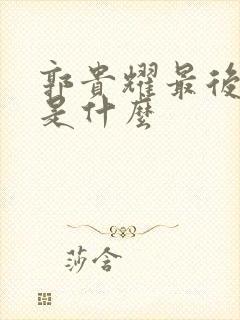 郭貴耀最後
是什麼
莎含